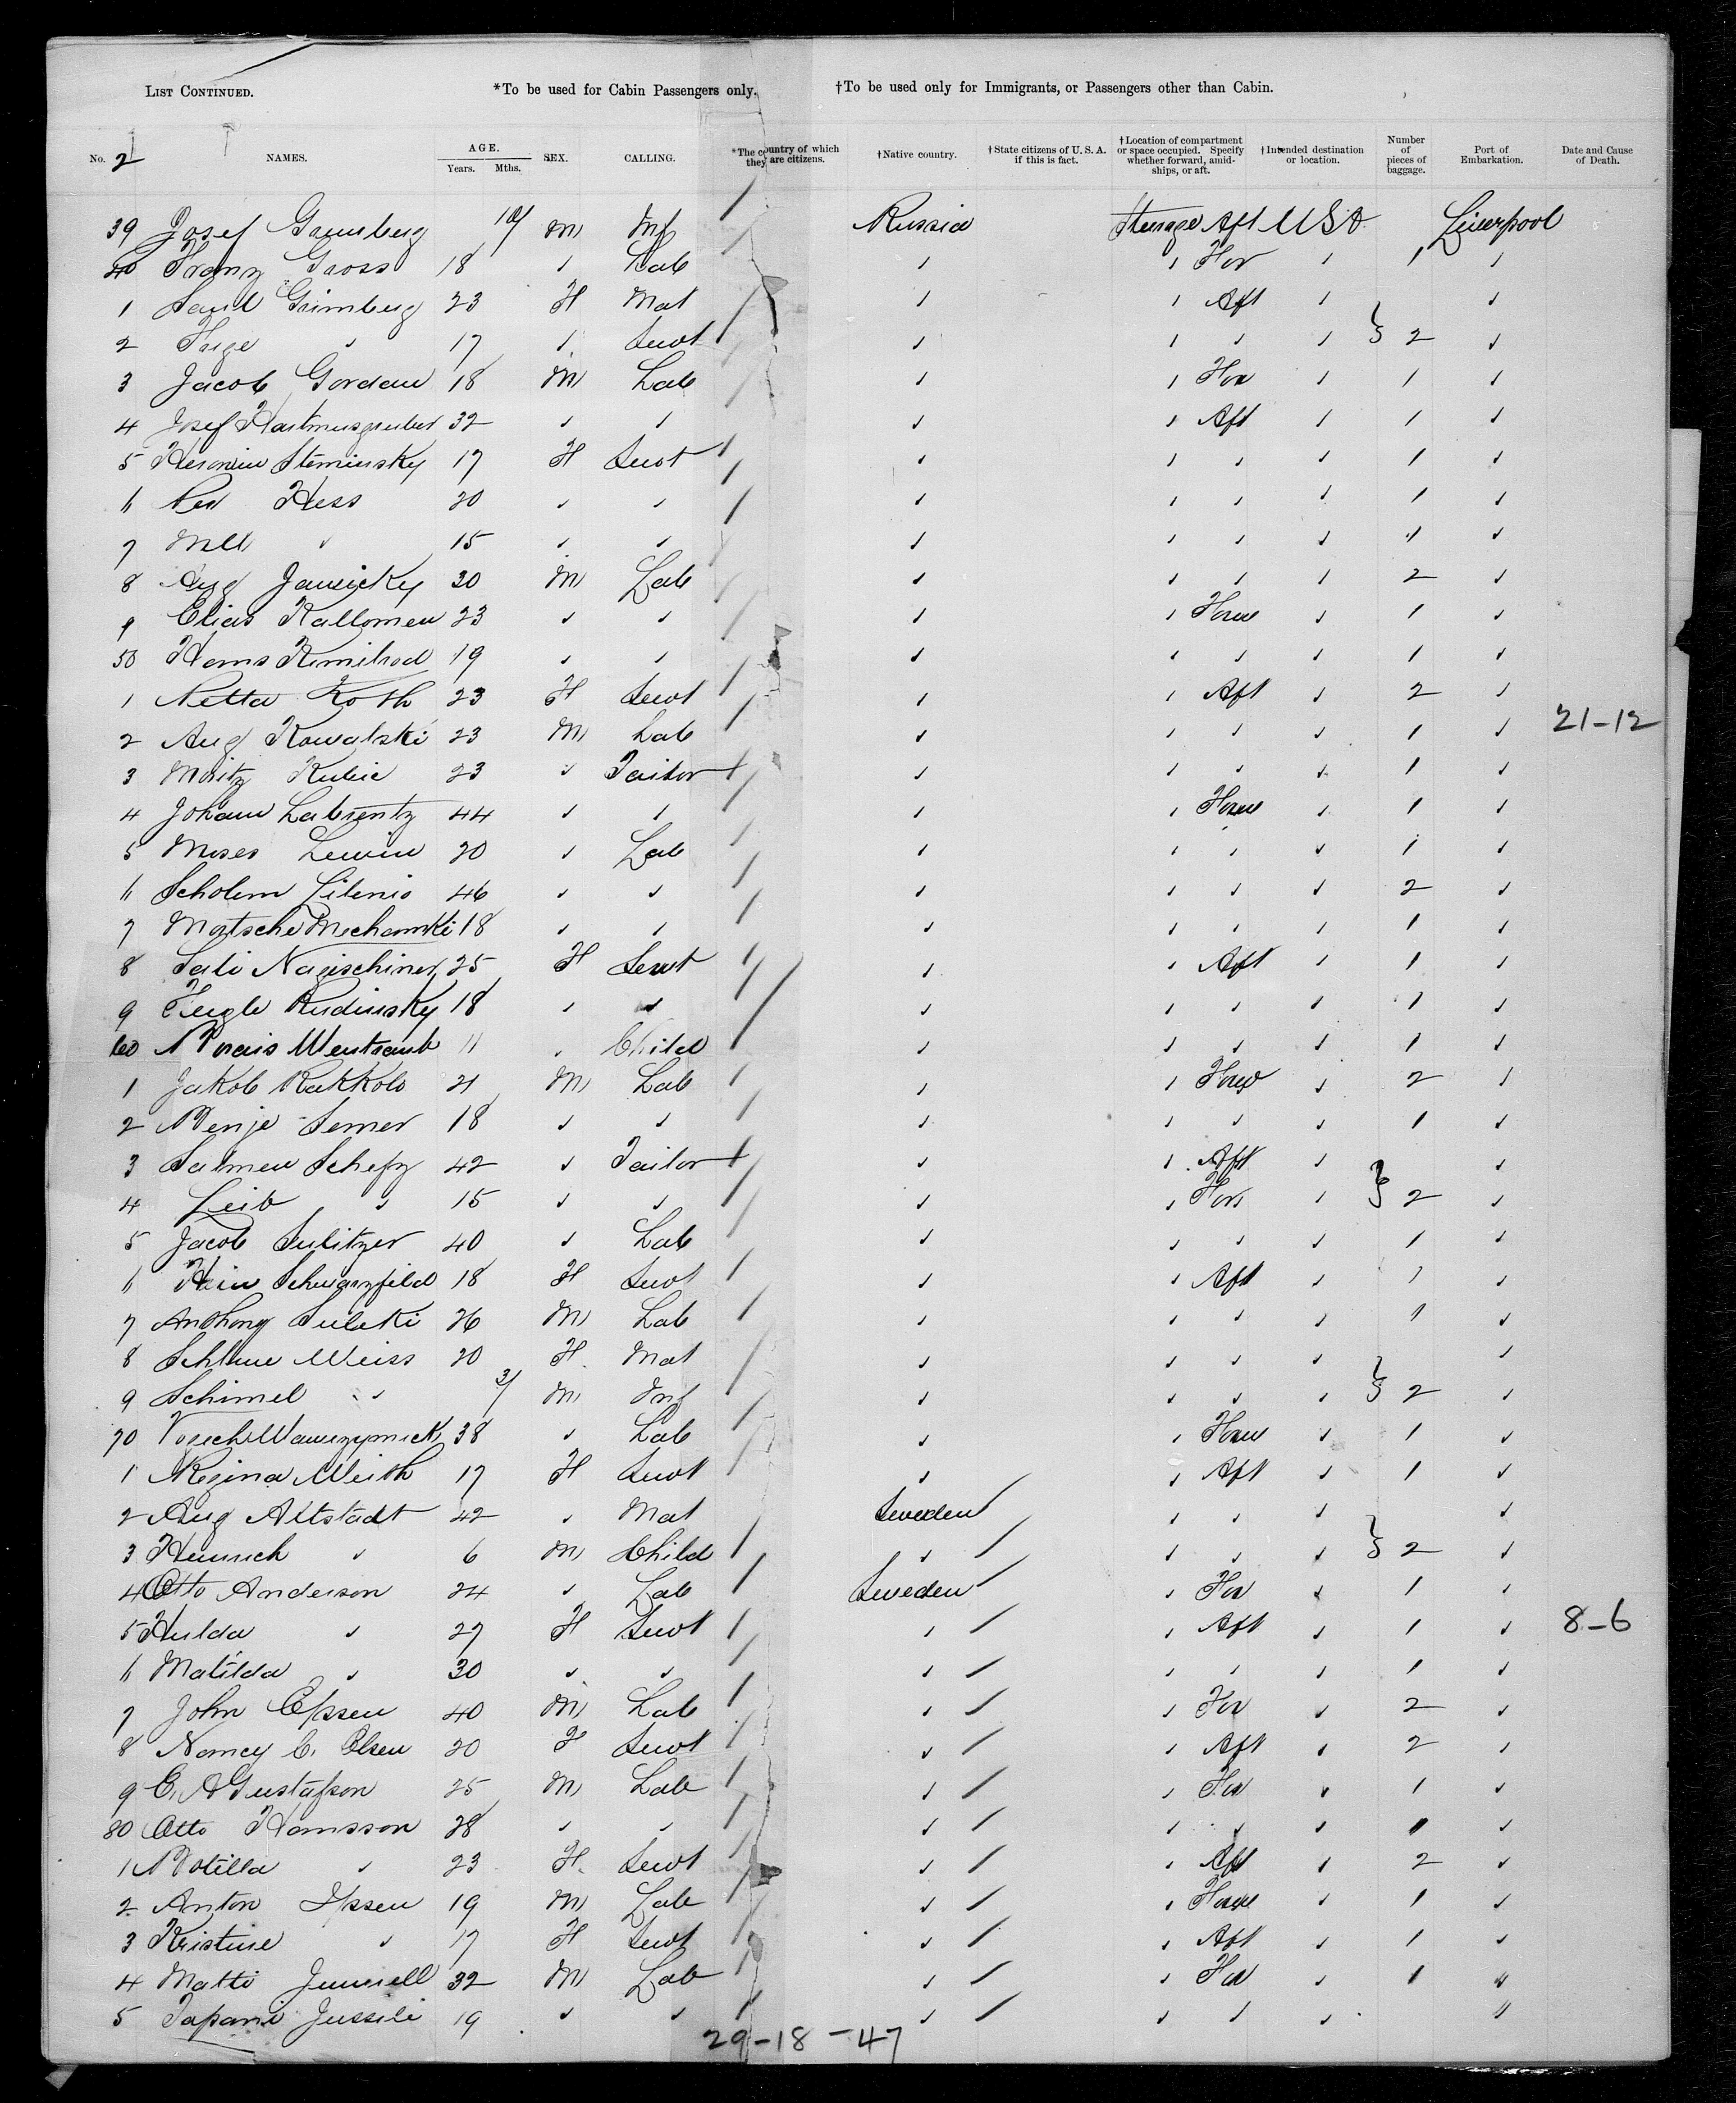 List Continued. *To be used for Cabin Passengers only. †To be used only for Immigrants, or Passengers other than Cabin.
No. 2 NAMES. AGE. Years. Mths. SEX. CALLING. *The country of which they are citizens. †Native country. †State citizens of U. S. A. if this is fact. †Location of compartment or space occupied. Specify whether forward, amidships, or aft. †Intended destination or location. Number of pieces of baggage. Port of Embarkation. Date and Cause of Death.
39 Josef M Inf Russia Steerage Aft USA Liverpool
40 Franz Gross 18 Lab For 1
1 Grimberg 23 F Mat Aft
2 Feige 17 Servt 2
3 Jacob Gordan 18 M Lab For 1
4 Josef 32 Aft 1
5 17 F Servt 1
6 Hess 20 1
7 15 1
8 Aug 30 M Lab 2
9 Elias 23 Forw 1
50 19 1
1 Netta Koth 23 F Servt Aft 2
2 Aug Kowalski 23 M Lab 1 21-12
3 Moritz Kubie 23 Tailor 1
4 Johann Labrentz 44 Forw 1
5 Moses Lewin 20 Lab 1
6 Scholem 46 2
7 18 1
8 Sali 25 F Servt Aft 1
9 Feigle Rudinsky 18 1
60 11 Child 1
1 Jakob Rakkolo 21 M Lab Forw 2
2 Semer 18 1
3 Salmen Schefz 42 Tailor Aft
4 Leib 15 Forw 2
5 Jacob Sulitzer 40 Lab 1
6 Schwarzfeld 18 F Servt Aft 1
7 Anthony 26 M Lab 1
8 Weiss 20 F Mat
9 Schimel M Inf 2
70 38 Lab Forw 1
1 Regina 17 F Servt Aft 1
2 Aug Altstadt 42 Mat Sweden
3 Heinrich 6 M Child 2
4 Otto Anderson 24 Lab Sweden For 1
5 Hulda 27 F Servt Aft 1 8-6
6 Matilda 30 1
7 John 40 M Lab For 2
8 Nancy C. Olsen 20 F Servt Aft 2
9 C. A Gustafson 25 M Lab For 1
80 Otto Hansson 28 1
1 23 F Servt Aft 2
2 Anton 19 M Lab Forw 1
3 Kristine 17 F Servt Aft 1
4 Matti 32 M Lab For 1 "
5 Tapani Jussili 19 "
29-18-47